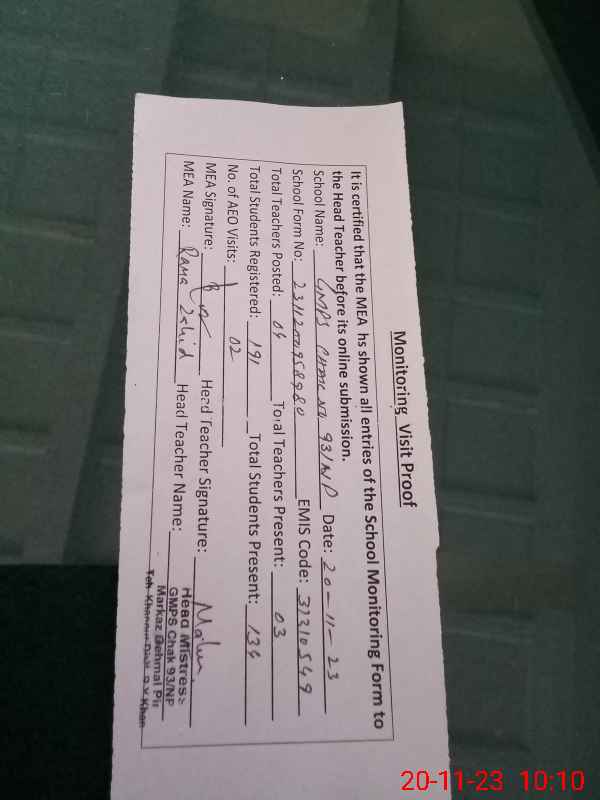 Monitoring Visit Proof
It is certified that the MEA hs shown all entries of the School Monitoring Form to
the Head Teacher before its online submission.
School Name: GMPS CHAK NO 93/NP Date: 20-11-23
School Form No: EMIS Code: 31310549
Total Teachers Posted: 04 Total Teachers Present: 03
Total Students Registered: 191 Total Students Present: 134
No. of AEO Visits: 02
MEA Signature: Head Teacher Signature:
MEA Name: Rana Zahid Head Teacher Name:
Head Mistress
GMPS Chak 93/NP
Markaz Behmal Pir
Teh. Khanpur Distt. R.Y.Khan
20-11-23 10:10